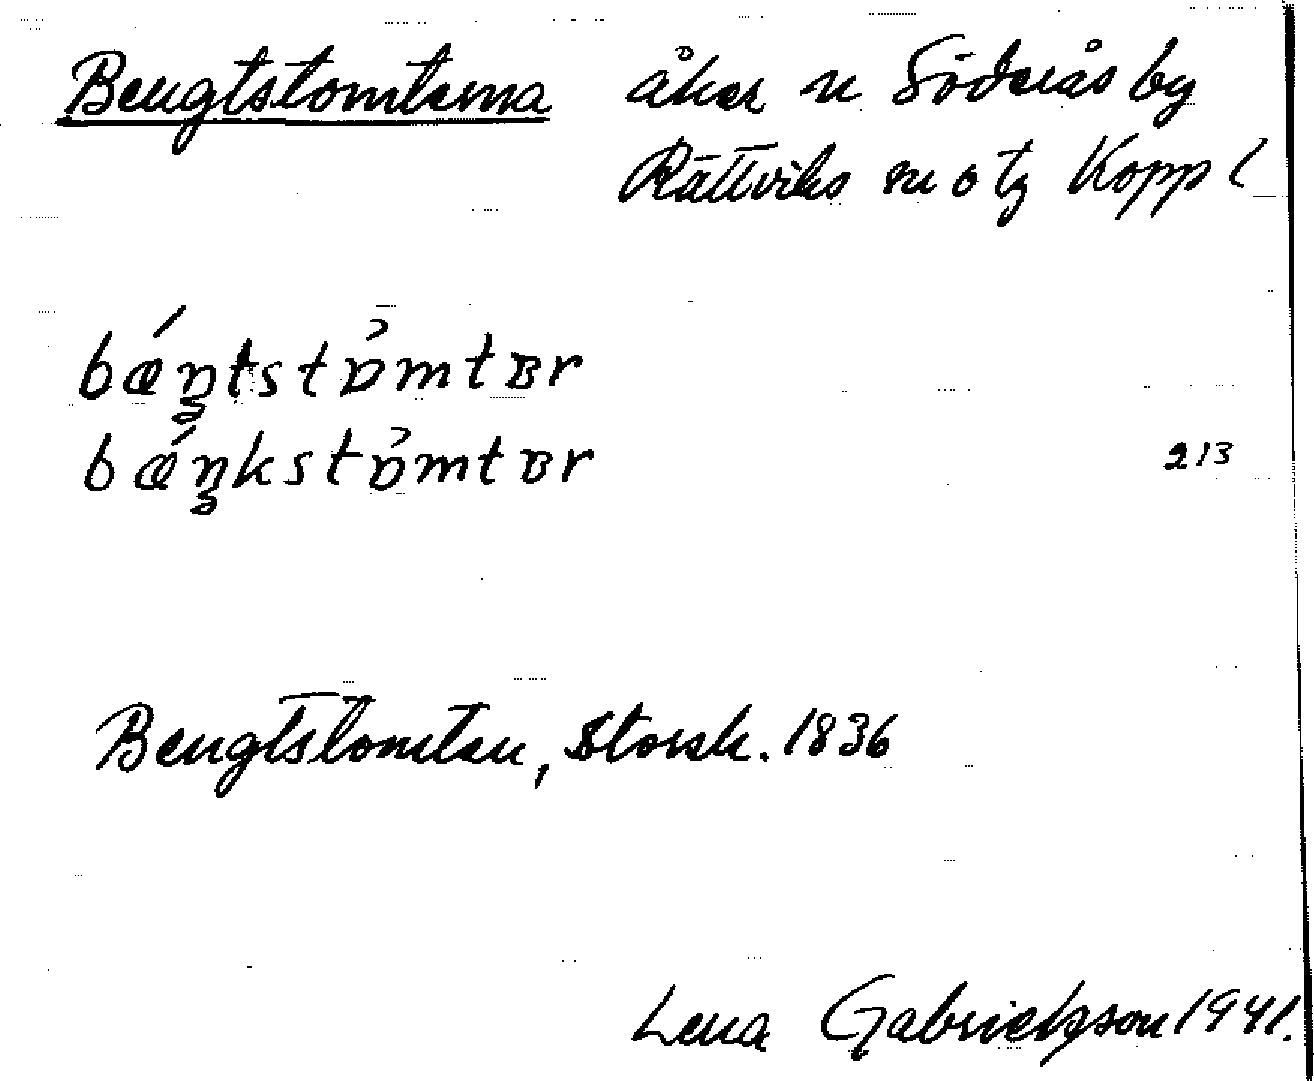 Bengtstomterna åker n Söderås by
Rättviks sn o tg Kopp l
bǽŋtstɒ̉mtɐr
bǽŋkstɒ̉mtɐr
213
Bengtstomten, Storsk. 1836
Lena Gabrielsson 1941.